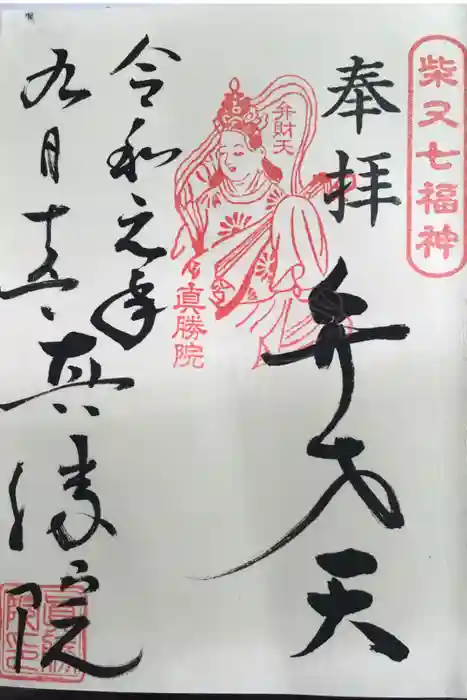 柴又七福神
奉拝
弁才天
弁財天
真勝院
令和元年
九月
真勝院